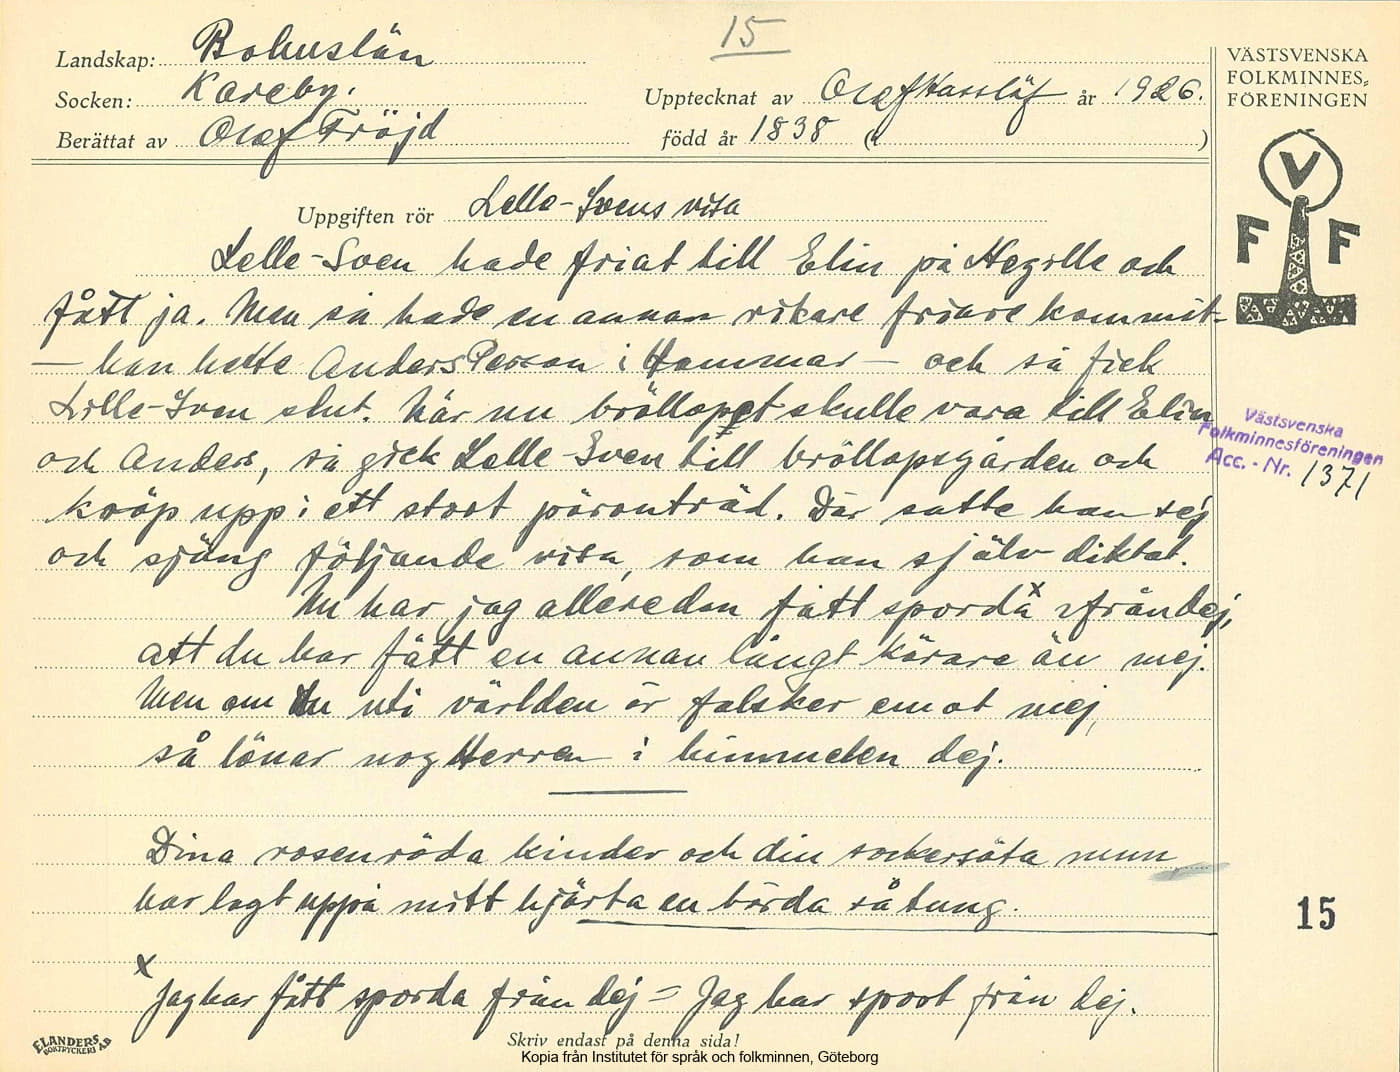 15
Landskap: Bohuslän
Socken: Kareby.
Upptecknat av Olof Hasslöf år 1926.
Berättat av Olof Fröjd
född år 1838 ( )
VÄSTSVENSKA
FOLKMINNES-
FÖRENINGEN
V
F F
Uppgiften rör Lelle-Svens visa
Lelle-Sven hade friat till Elin på Hegelle och
fått ja. Men så hade en annan rikare friare kommit
— han hette Anders Persson i Hammar — och så fick
Lille-Sven slut. När nu bröllopet skulle vara till Elin
och Anders, så gick Lelle-Sven till bröllopsgården och
kröp upp i ett stort päronträd. Där satte han sej
och sjöng följande visa, som han själv diktat.
Nu har jag alleredan fått spordax ifrån dej,
att du har fått en annan långt kärare än mej.
Men om du uti världen är falsker emot mej,
så lönar nog Herren i himmelen dej.
Dina rosenröda kinder och din sockersöta mun
har lagt uppå mitt hjärta en börda så tung.
x
Jag har fått sporda från dej = Jag har sport från dej.
Västsvenska
Folkminnesföreningen
Acc. - Nr. 1371
15
ELANDERS
BOKTRYCKERI AB
Skriv endast på denna sida!
Kopia från Institutet för språk och folkminnen, Göteborg